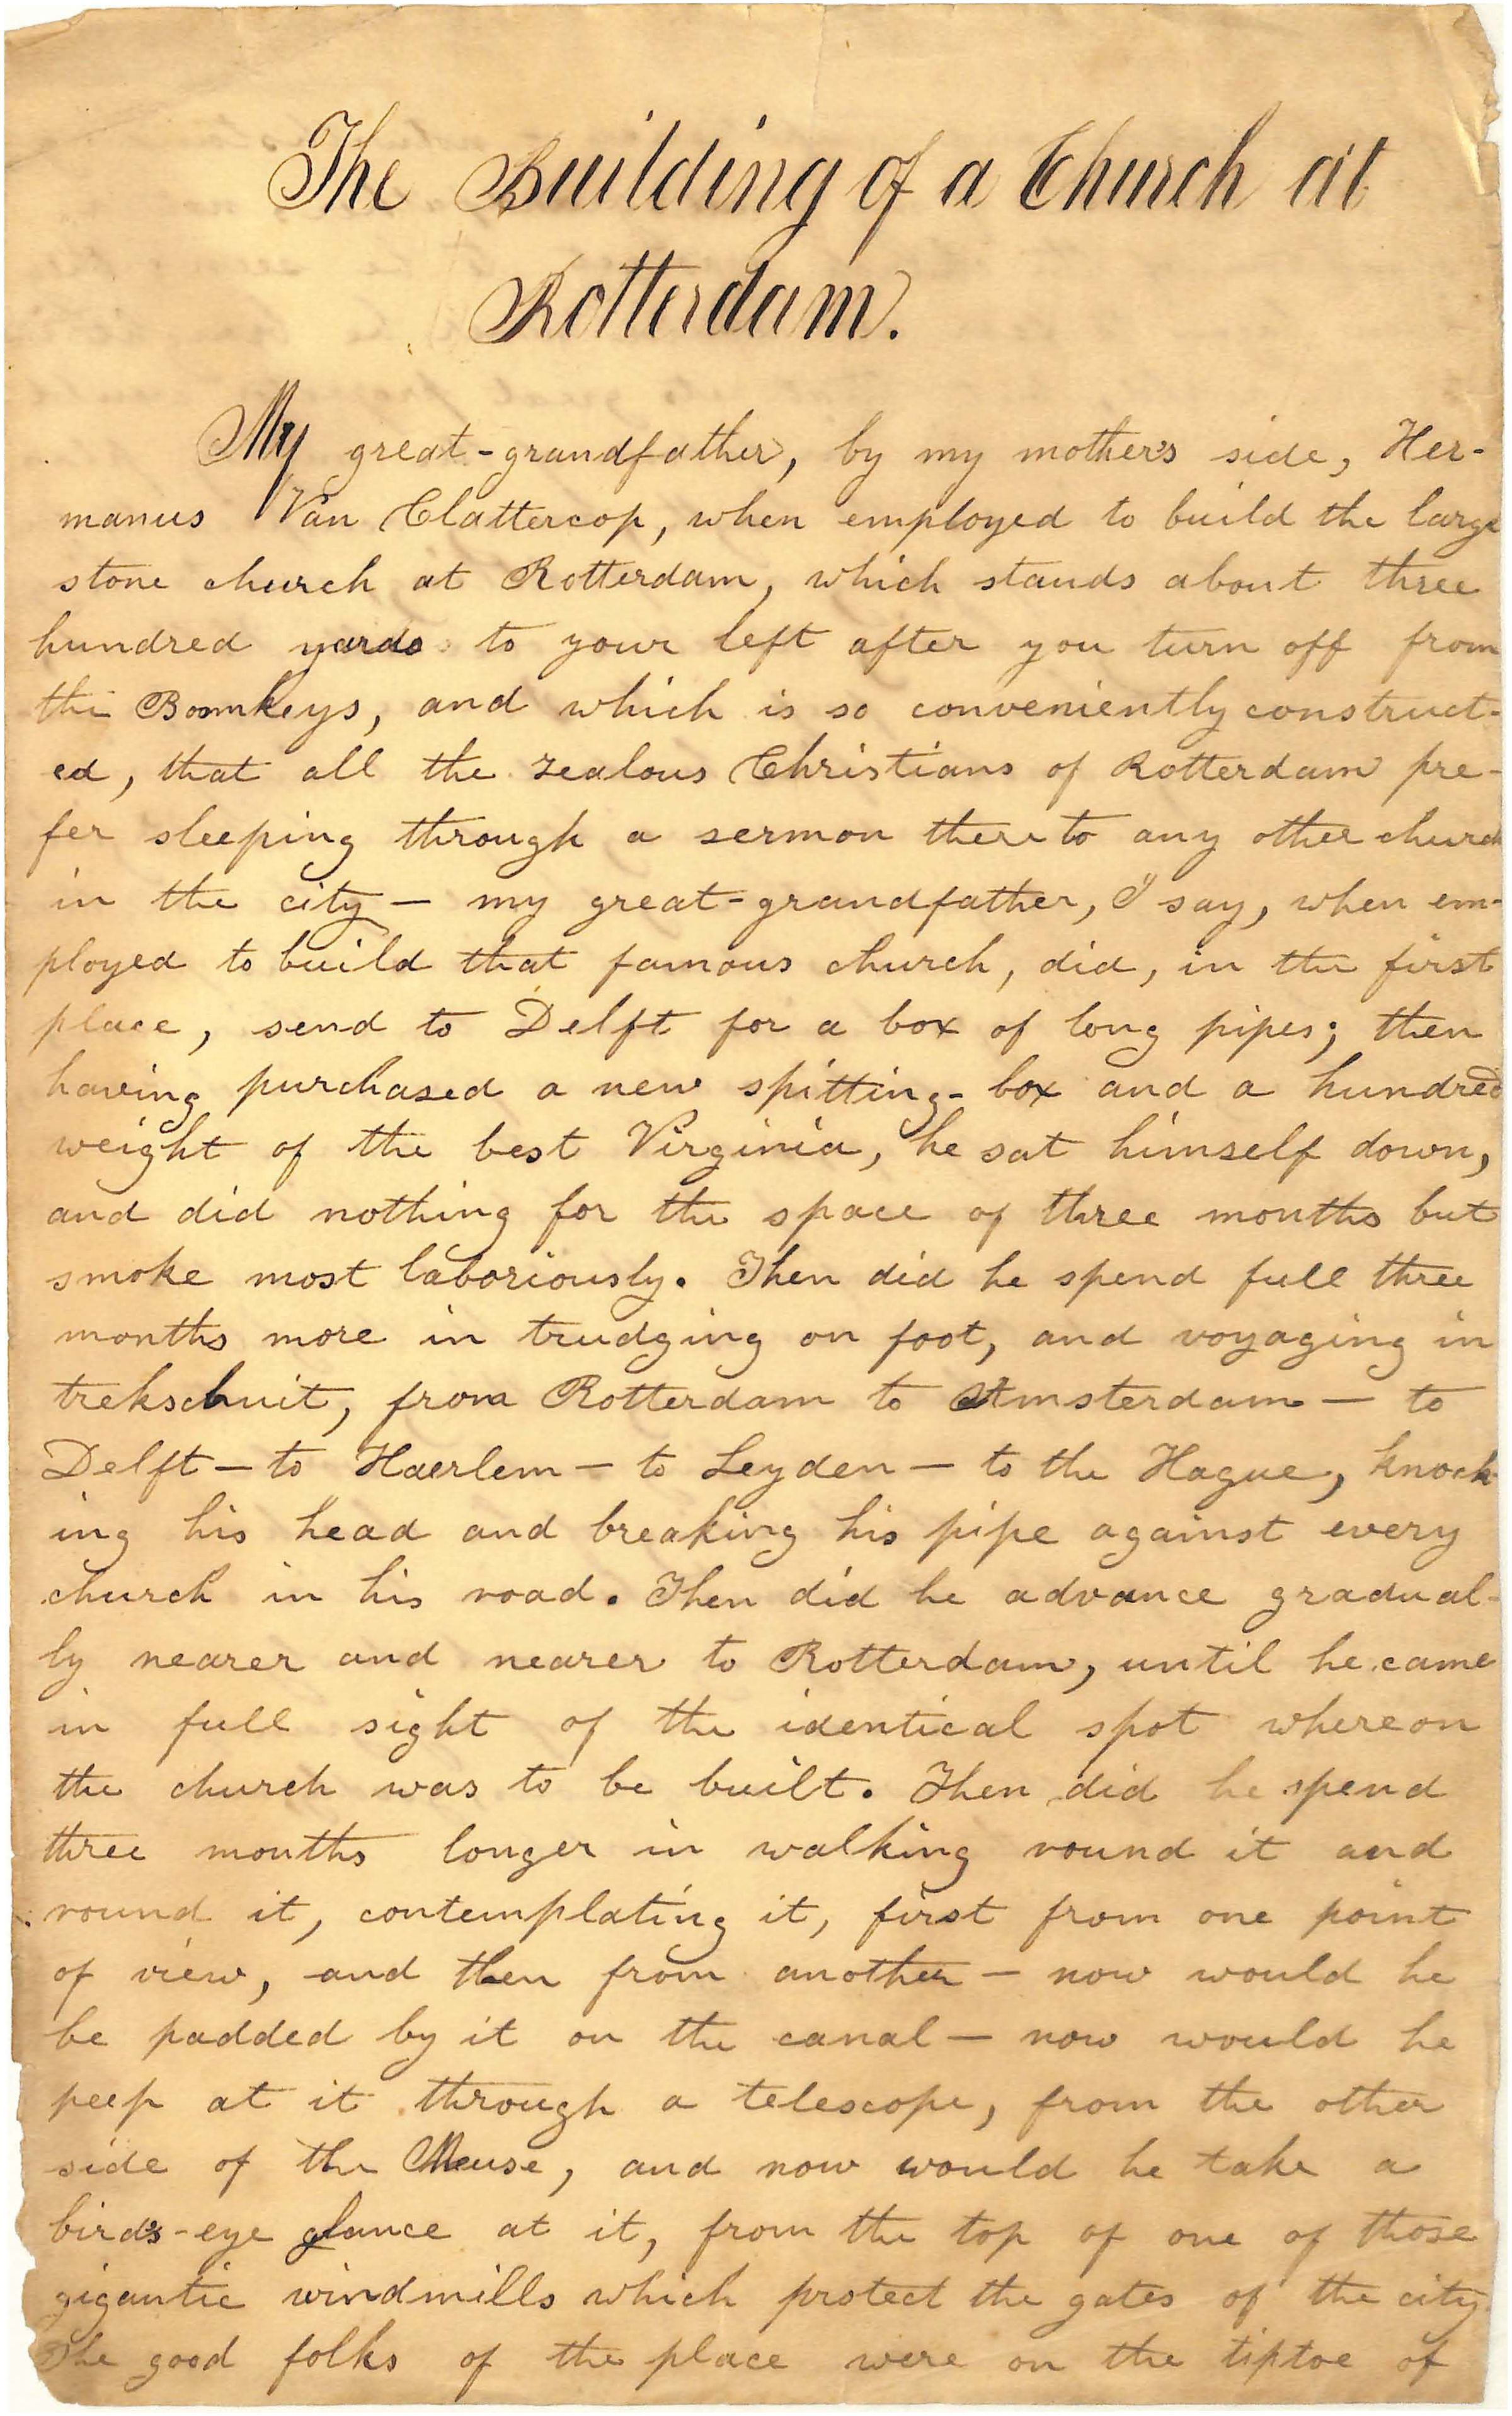 The Building of a Church at
Rotterdam.
My great-grandfather, by my mother's side, Her-
manus Van Clattercop, when employed to build the large
stone church at Rotterdam, which stands about three
hundred yards to your left after you turn off from
the Boomkeys, and which is so conveniently construct-
ed, that all the zealous Christians of Rotterdam pre-
fer sleeping through a sermon there to any other church
in the city — my great-grandfather, I say, when em-
ployed to build that famous church, did, in the first
place, send to Delft for a box of long pipes; then
having purchased a new spitting-box and a hundred
weight of the best Virginia, he sat himself down,
and did nothing for the space of three months but
smoke most laboriously. Then did he spend full three
months more in trudging on foot, and voyaging in
trekschuit, from Rotterdam to Amsterdam — to
Delft — to Haerlem — to Leyden — to the Hague, knock-
ing his head and breaking his pipe against every
church in his road. Then did he advance gradual-
ly nearer and nearer to Rotterdam, until he came
in full sight of the identical spot whereon
the church was to be built. Then did he spend
three months longer in walking round it and
round it, contemplating it, first from one point
of view, and then from another — now would he
be padded by it on the canal — now would he
peep at it through a telescope, from the other
side of the Meuse, and now would he take a
bird's-eye glance at it, from the top of one of those
gigantic windmills which protect the gates of the city.
The good folks of the place were on the tiptoe of